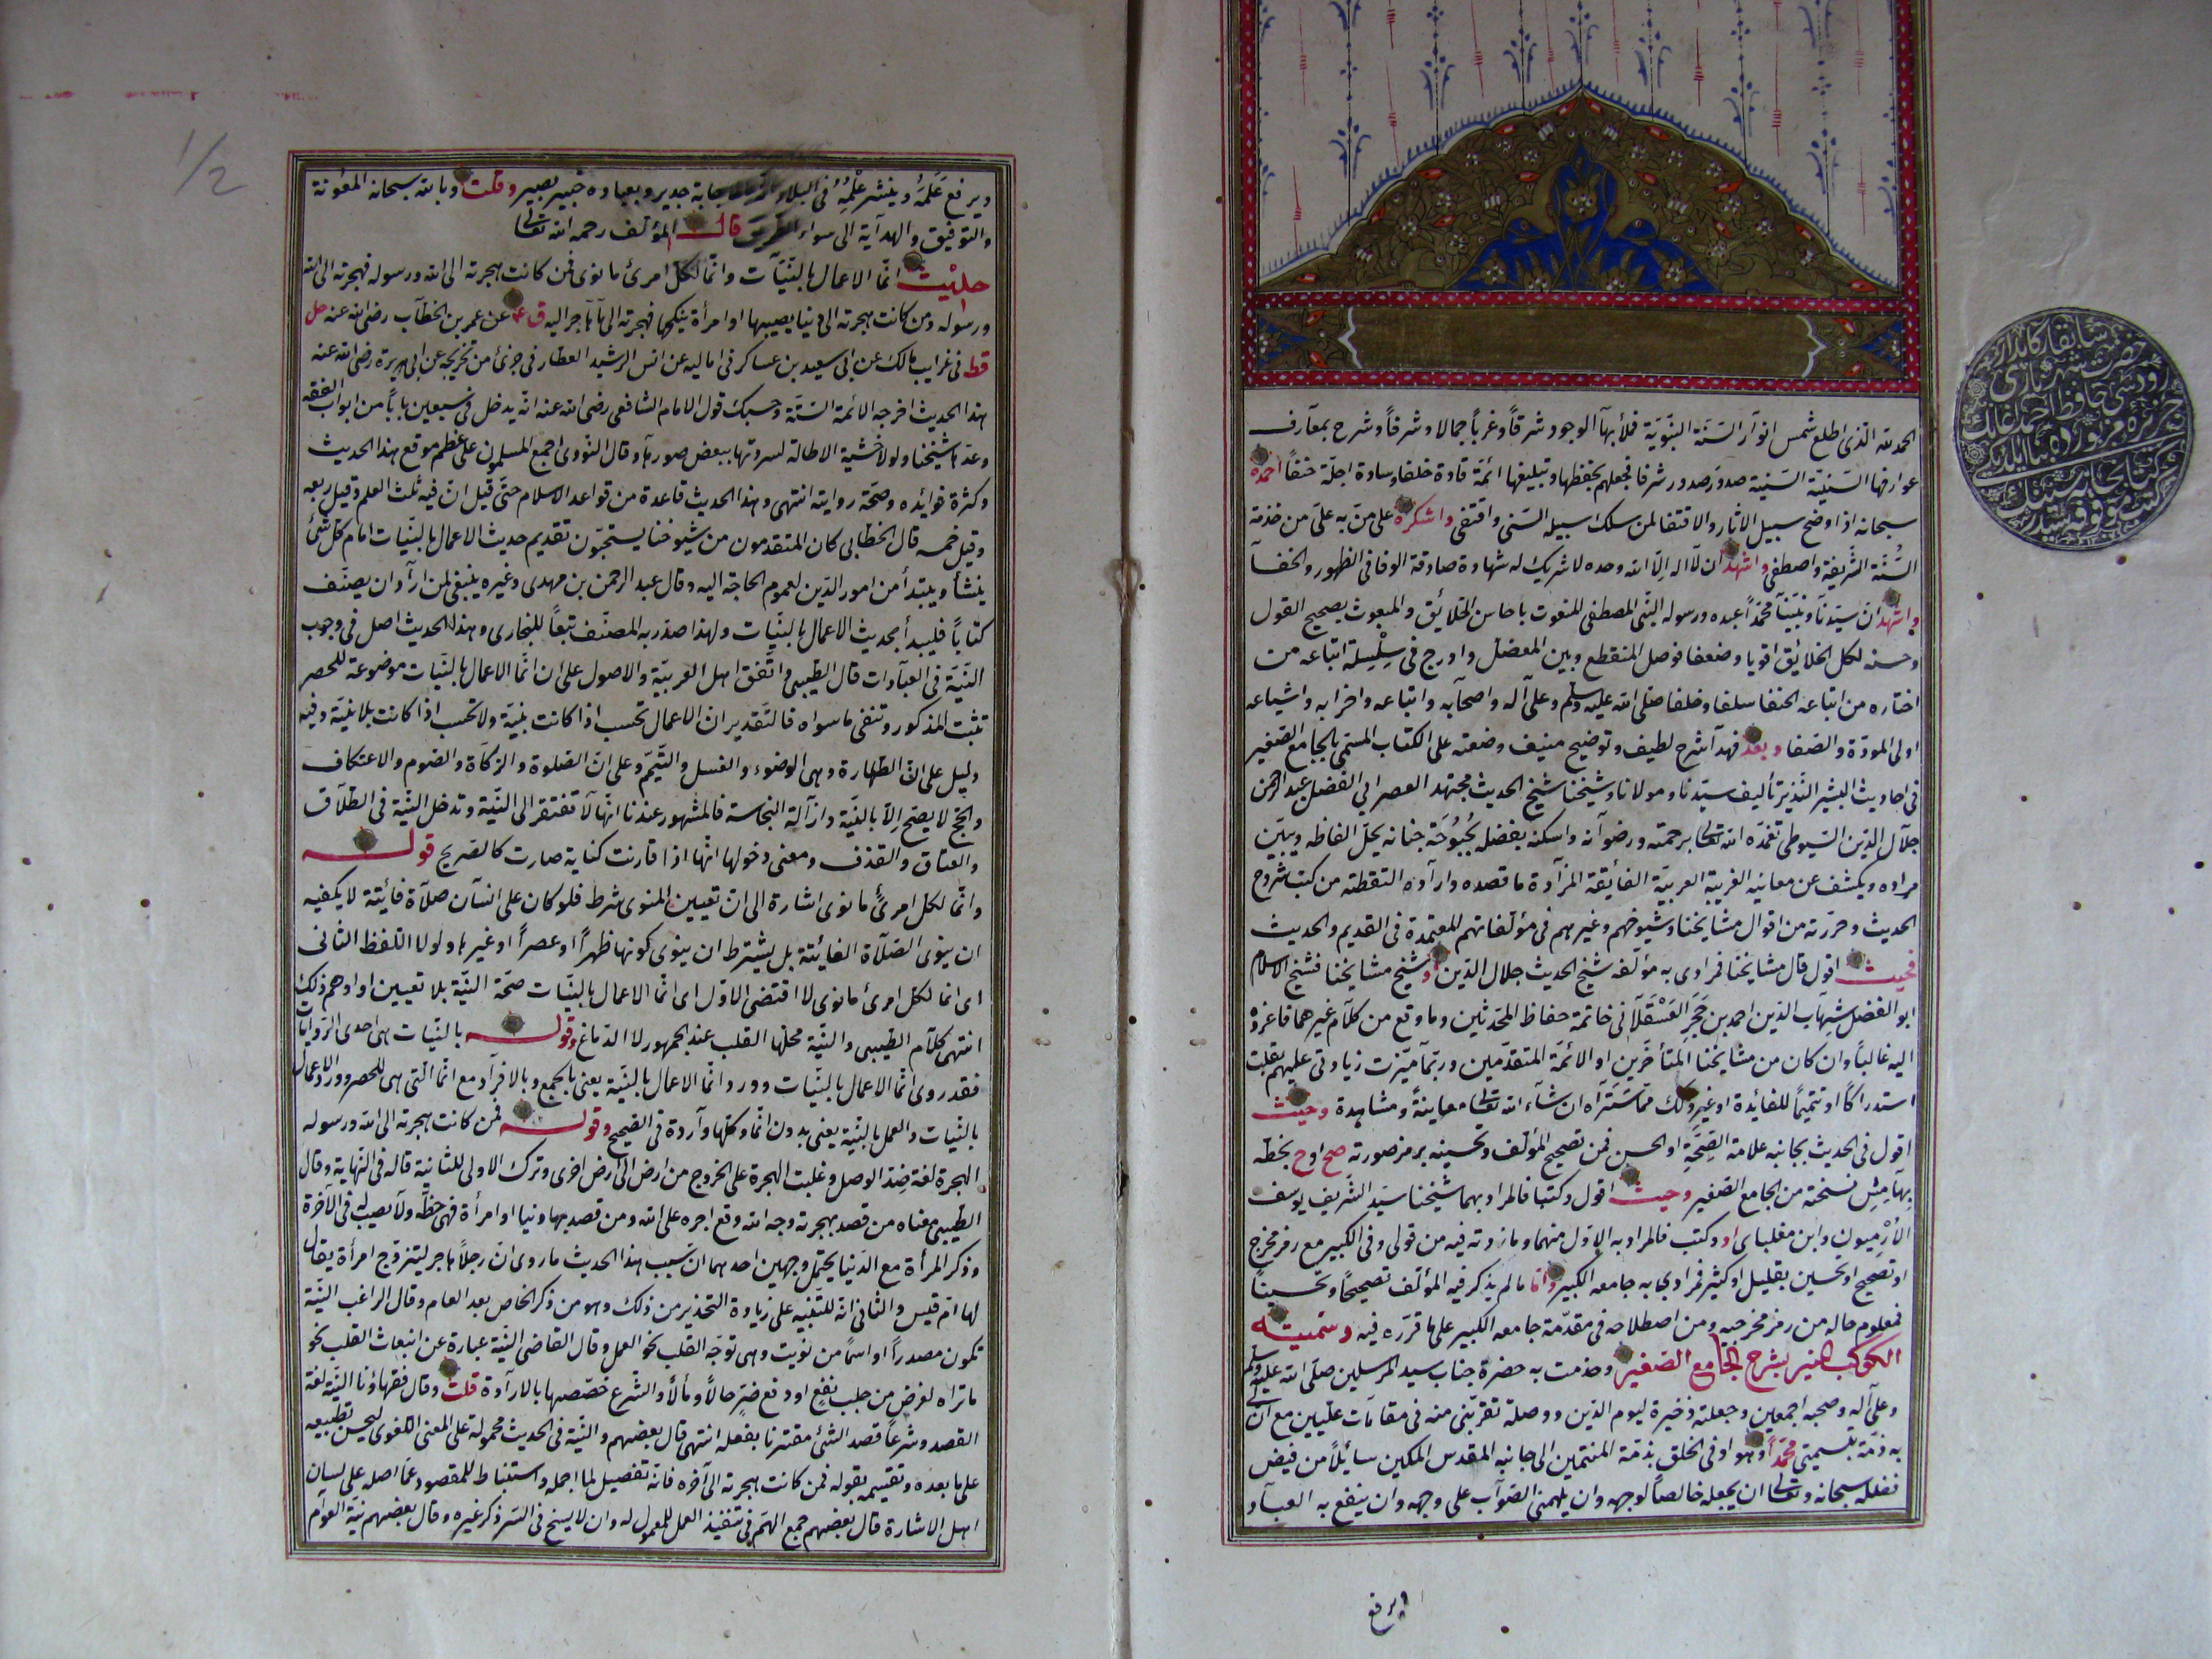 الحمد لله الذى اطلع شمس انوار السنة النبوية فلأ بهآ الوجود شرقاً وغرباً جمالا وشرفاً وشرح بمعآرف
عوارفها السنية السنية صدور صدور شرفا فجعلهم بحفظها وتبليغها ائمة قادة خلفا وسادة اجلة حنفاً احمده
سبحانه اذ اوضح سبيل الاثار والاقتفا لمن سلك سبيله السنى واقتفى واشكره على ما من به علىّ من خدمة
السُّنّة الشريفة واصطفى واشهد ان لآ اله الّا الله وحده لا شريك له شهادة صادقة الوفا فى الظهور والخفآ
واشهد ان سيّدنا ونبينآ محمّداً عبده ورسوله النبى المصطفى المنعوت باحاسن الخلائق والمبعوث بصحيح القول
وحسنه لكل الخلائق اقويا وضعفا فوصل المنقطع وبين المعضل وادرج فى سلسلة اتباعه من
اختاره من اتباعه الحنفا سلفا وخلفا صلّى الله عليه وسلم وعلى آله واصحآبه واتباعه واحزابه واشياعه
اولى المودّة والصفا وبعد فهذآ شرح لطيف وتوضيح منيف وضعته على الكتاب المسمى بالجامع الصغير
فى احاديث البشير النذير تأليف سيّدنا ومولانا وشيخنا شيخ الحديث مجتهد العصر ابي الفضل عبد الرحمن
جلآل الدّين السّيوطى تغمّده الله تعالى برحمته ورضوآنه واسكنه بفضله بُحْبُوحَة جنانه يحلّ الفاظه ويبيّن
مراده ويكشف عن معانيه الغريبة العربيّة الفائقة المرآدة ما قصده وارآده التقطته من كتب شروح
الحديث وحرّرته من اقوال مشايخنا وشيوخهم وغيرهم فى مؤلفاتهم المعتمدة فى القديم والحديث
فحيث اقول قال مشايخنا فمرادى به مؤلفه شيخ الحديث جلال الدّين او شيخ مشايخنا فشيخ الاسلام
ابو الفضل شهآب الدّين احمد بن حَجَر العَسْقَلآنى خاتمة حفاظ المحدّثين وما وقع من كلآم غيرهما فاعزوه
اليه غالباً وان كان من مشايخنا المتأخرين او الائمّة المتقدّمين وربّمآ ميّزت زيادتى عليهم بقلت
استدراكاً او تتميماً للفائدة او غير ذلك ممّا ستَرآه ان شآء الله تعالى معاينةً ومشاهدة وحيث
اقول فى الحديث بجانبه علامة الصّحّة او الحسن فمن تصحيح المؤلف وتحسينه برمز صورته صح او ح بخطّه
بهآمِش نسخته من الجامع الصّغير وحيث اقول وكتبا فالمراد بهما شيخنا سيد الشّريف يوسف
الأرميون وابن مغلباى او وكتب فالمراد به الاوّل منهما وما زدته فيه من قولى وفى الكبير مع رمز مخرج
او تصحيح او تحسين بقليل او كثير فمرادى به جامعه الكبير وامّا ما لم يذكر فيه المؤلف تصحيحاً وتحسيناً
فمعلوم حاله من رمز مخرجيه ومن اصطلاحه فى مقدّمة جامعه الكبير على ما قرّره فيه وسميته
الكوكب المنير بشرح الجامع الصغير وخدمت به حضرة جناب سيد المرسلين صلّى الله عليه وسلم
وعلى آله وصحبه أجمعين وجعلته ذخيرة ليوم الدّين ووصلة تقرّبنى منه فى مقامات علّيين مع ان لى
به ذمّة بتسميتى محمّداً وهو اوفى الخلق بذمّة المنتمين الى جانبه المقدس المكين سايلاً من فيض
فضله سبحانه وتعالى ان يجعله خالصاً لوجهه وان يلهمنى الصّوآب على وجهه وان ينفع به العبآد
ويرفع
ويرفع عَلَمَهُ وينشر عِلْمَهُ فى البلاد بالاجابة جدير وبعباده خبير بصير وقلت وبالله سبحانه المعونة
والتوفيق والهدآية الى سواء الطريق قال المؤلف رحمه الله تعالى
حديث انمّا الاعمال بالنّيّات وانمّا لكلّ امرئ ما نوى فمن كانت هجرته الى الله ورسوله فهجرته الى الله
ورسوله ومن كانت هجرته الى دنيا يصيبها او امرأة ينكحها فهجرته الى ما هاجر اليه ق ع عن عمر بن الخطآب رضى الله عنه حل
قط فى غرايب مالك عن ابى سعيد بن عساكر فى اماليه عن انس الرشيد العطار فى جزئ من تخريجه عن ابى هريرة رضى الله عنه
هذا الحديث اخرجه الائمة السّتّة وحسبك قول الامام الشافعى رضى الله عنه انّه يدخل فى سبعين باباً من ابواب الفقه
وعدّها شيخنا ولولا خشية الاطالة لسردتها ببعض صورها وقال النّووى اجمع المسلمون على عظم موقع هذا الحديث
وكثرة فوائده وصحّة روايته انتهى وهذا الحديث قاعدة من قواعد الاسلام حتّى قيل انّ فيه ثلث العلم وقيل ربعه
وقيل خمسه قال الخطابى كان المتقدمون من شيوخنا يستحبّون تقديم حديث الاعمال بالنّيات امام كل شئ
ينشأ ويبتدأ من امور الدّين لعموم الحاجة اليه وقال عبد الرحمن بن مهدى وغيره ينبغى لمن ارآد ان يصنّف
كتاباً فليبدأ بحديث الاعمال بالنيّات ولهذا صدّر به المصنّف تبعاً للبخارى وهذا الحديث اصل فى وجوب
النّيّة فى العبآدات قال الطّيبى واتّفق اهل العربيّة والاصول على ان انمّا الاعمال بالنّيات موضوعة للحصر
تثبت المذكور وتنفى ما سواه فالتّقدير ان الاعمال تحسب اذا كانت بنيّة ولا تحسب اذا كانت بلا نيّة وفيه
دليل على انّ الطّهارة وهى الوضوء والغسل والتّيمّم وعلى انّ الصّلوة والزكاة والصّوم والاعتكاف
والحجّ لا يصحّ الّا بالنّيّة وازآلة النجاسة فالمشهور عندنا انّها لآ تفتقر الى النّيّة وتدخل النّيّة فى الطّلآق
والعتاق والقذف ومعنى دخولها انّها اذا قارنت كناية صارت كالصّريح قوله
وانّما لكل امرئ ما نوى اشارة الى انّ تعيين المنوى شرط فلو كان على انسآن صلآة فائتة لا يكفيه
ان ينوى الصّلآة الفائتة بل يشترط ان ينوى كونها ظهراً او عصراً او غيرها ولولا اللفظ الثانى
اى انما لكل امرئ ما نوى لاقتضى الاوّل اى انّما الاعمال بالنّيّات صحّة النّيّة بلا تعيين او اوهم ذلك
انتهى كلآم الطّيبى والنّية محلها القلب عند الجمهور لا الدّماغ وقوله بالنّيّات هى احدى الرّوايات
فقد روى انمّا الاعمال بالنّيّات وورد انمّا الاعمال بالنّيّة يعنى بالجمع وبالافرآد مع انّما التى هى للحصر وورد الاعمال
بالنّيات والعمل بالنّيّة يعنى بدون انّما وكلّها وآردة فى الصحيح وقوله فمن كانت هجرته الى الله ورسوله
الهجرة لغة ضدّ الوصل وغلبت الهجرة على الخروج من ارض الى ارض اخرى وترك الاولى للثانية قاله فى النّهاية وقال
الطّيبى معناه من قصد بهجرته وجه الله وقع اجره على الله ومن قصد بها دنيا او امرأة فهى حظّه ولآ نصيب له فى الآخرة
وذكر المرأة مع الدّنيا يحتمل وجهين احدهما ان سبب هذا الحديث ما روى انّ رجلاً هاجر ليتزوّج امرأة يقال
لها امّ قيس والثانى انه للتّنبيه على زيادة التحذير من ذلك وهو من ذكر الخاص بعد العام وقال الراغب النّيّة
تكون مصدراً او اسماً من نويت وهى توجّه القلب نحو العمل وقال القاضى النّيّة عبارة عن انبعاث القلب نحو
ما تراه لغرض من جلب نفع او دفع ضرّ حالاً ومآلاً والشّرع خصّصها بالارآدة قلت وقال فقهاؤنا النّيّة لغة
القصد وشرعاً قصد الشّئ مقترنا بفعله انتهى قال بعضهم والنّيّة فى الحديث محمولة على المعنى اللّغوى ليحسن تطبيقه
على ما بعده وتقسيمه بقوله فمن كانت هجرته الى آخره فانّه تفصيل لما اجمله واستنباط للمقصود عمّا اصله على لسان
اهل الاشارة قال بعضهم جمع الهمّ فى تنفيذ العمل للمعمول له وان لا يسنح فى السّر ذكر غيره وقال بعضهم نيّة العوآم